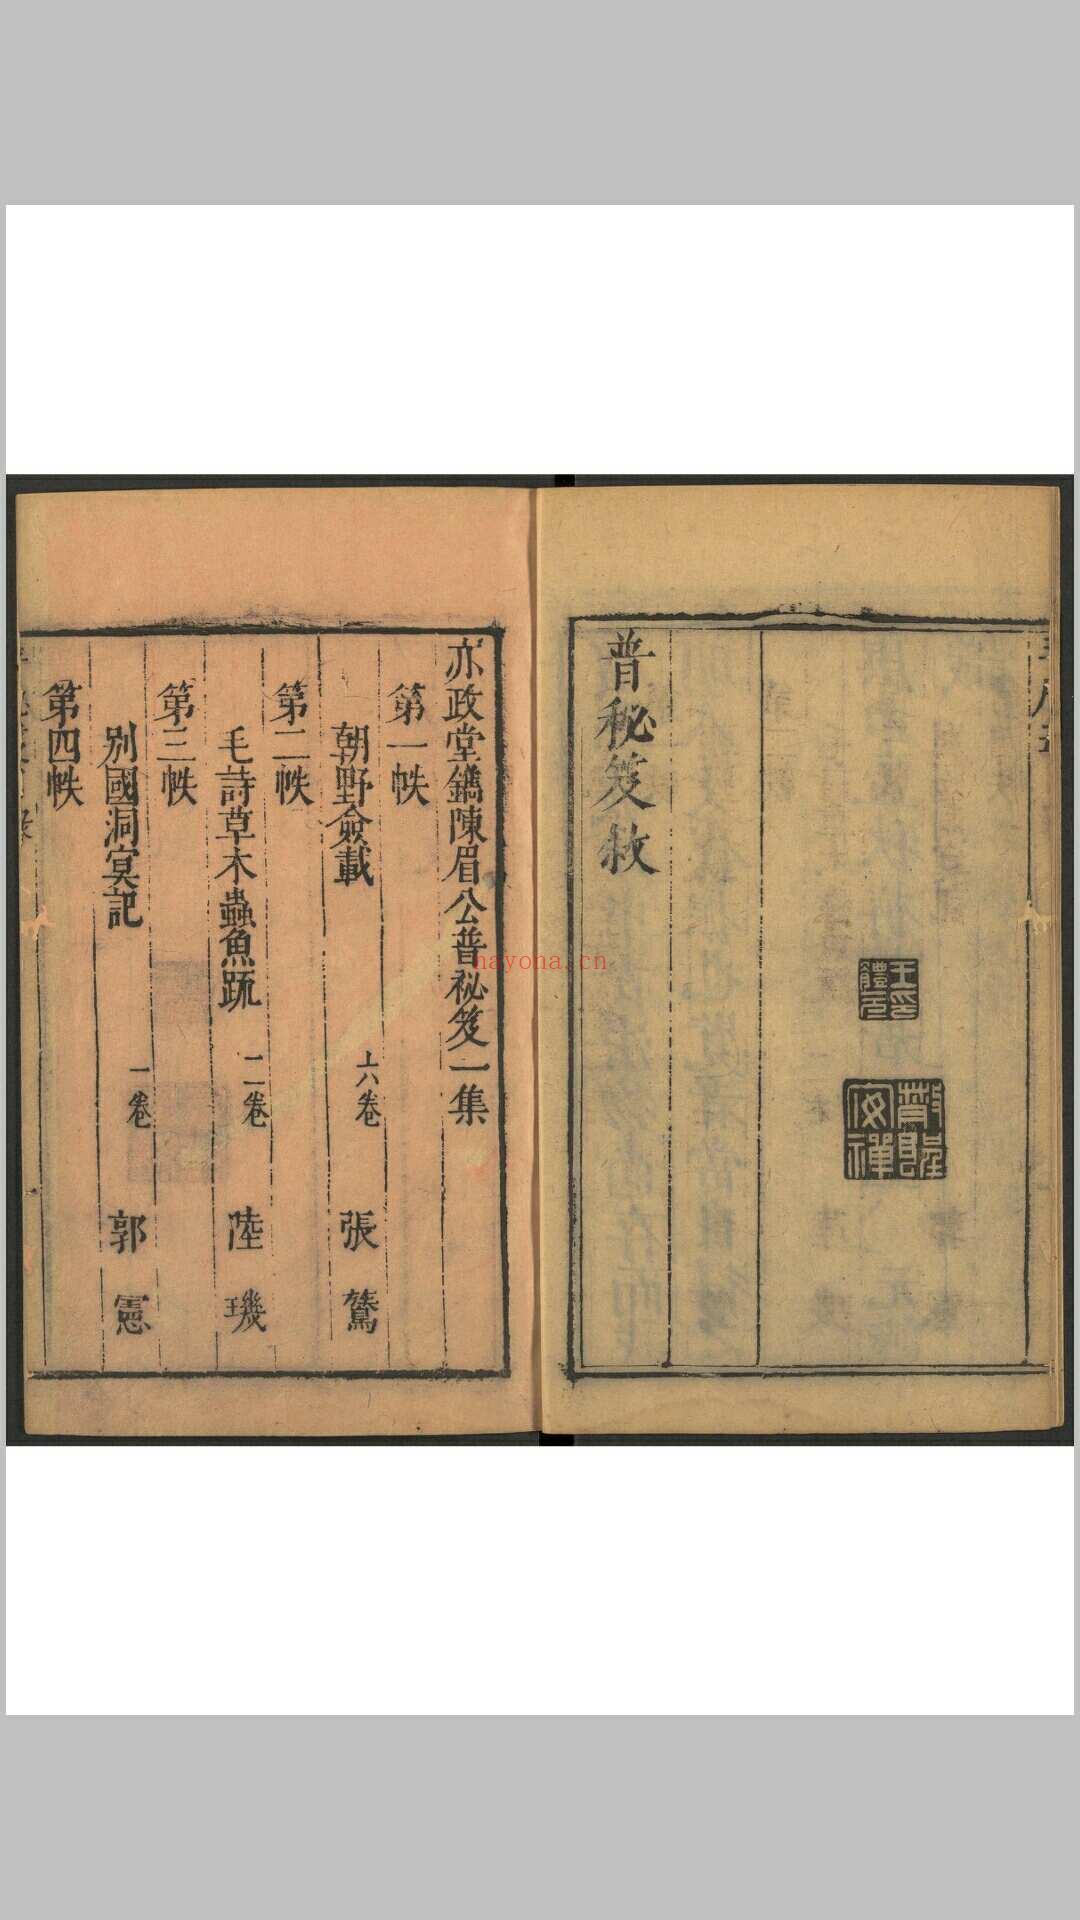 普秘笈敘
王印體元
亦政堂鐫陳眉公普祕笈一集
第一帙
朝野僉載 六卷 張鷟
第二帙
毛詩草木蟲魚疏 二卷 陸璣
第三帙
別國洞冥記 一卷 郭憲
第四帙
nayona.cn